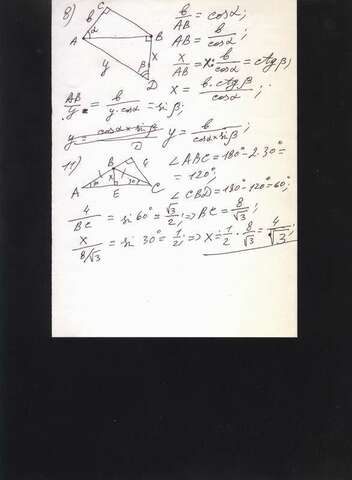 8) C b α A B x β y D b/AB = cosα;
AB = b/cosα;
x/AB = x : b/cosα = ctgβ;
x = b·ctgβ/cosα;
AB/y = b/y·cosα = sinβ;
y = b/cosα×sinβ;
11) B 4 A x 30° E C ∠ABC = 180° - 2·30° =
= 120°;
∠CBD = 180° - 120° = 60°;
4/BC = sin 60° = √3/2; => BC = 8/√3;
x/8/√3 = sin 30° = 1/2; => x = 1/2 · 8/√3 = 4/√3;